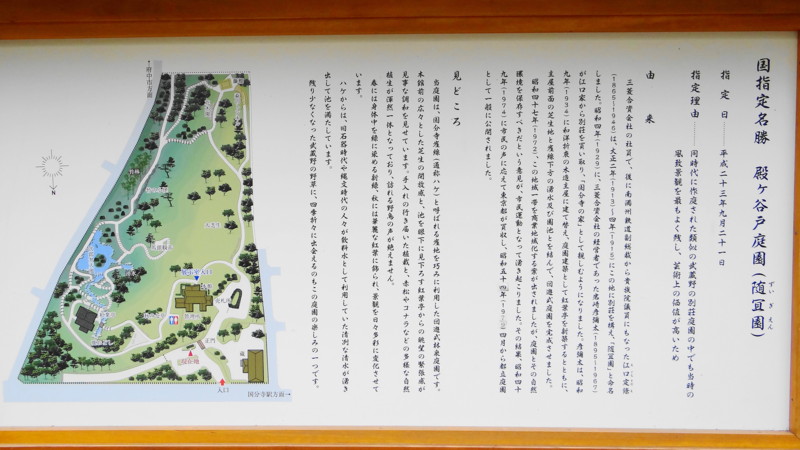 国指定名勝　殿ヶ谷戸庭園(随冝園)
ずい ぎ えん
指 定 日 ── 平成二十三年九月二十一日
指定理由 ── 同時代に作庭された類似の武蔵野の別荘庭園の中でも当時の
風致景観を最もよく残し、芸術上の価値が高いため
由　来
三菱合資会社の社員で、後に南満洲鉄道副総裁から貴族院議員にもなった江口定條
(1865~1946)は、大正二年(1913)~四年(1915)にこの地に別荘を構え、「随冝園」と命名
しました。昭和四年(1929)に、三菱合資会社の経営者であった岩崎彦彌太(1895~1967)
が江口家から別荘を買い取り、「国分寺の家」として親しむようになりました。彦彌太は、昭和
九年(1934)に和洋折衷の木造主屋に建て替え、庭園建築として紅葉亭を新築するとともに、
主屋前面の芝生地と崖線下方の湧水及び園池とを結んで、回遊式庭園を完成させました。
昭和四十七年(1972)、この地域一帯を商業地域化する案が出されましたが、庭園とその自然
環境を保存すべきだという意見が、市民運動となって湧き起こりました。その結果、昭和四十
九年(1974)に市民の声に応えて東京都が買収し、昭和五十四年(1979)四月から都立庭園
として一般に公開されました。
見どころ
当庭園は、国分寺崖線(通称ハケ)と呼ばれる崖地を巧みに利用した回遊式林泉庭園です。
本館前の広々とした芝生の開放感と、池を眼下に見下ろす紅葉亭からの眺望の緊張感が
見事な調和を見せています。手入れの行き届いた植栽と、赤松やコナラなどの多様な自然
植生が渾然一体となっており、訪れる野鳥の声が絶えません。
春には身体中を緑に染める新緑、秋には華麗な紅葉に飾られ、景観を日々多彩に変化させて
います。
ハケからは、旧石器時代や縄文時代の人々が飲料水として利用していた清冽な清水が湧き
出して池を満たしています。
残り少なくなった武蔵野の野草に、四季折々に出会えるのもこの庭園の楽しみの一つです。
↑府中市方面
N
竹林
正門
蔵
現在地
入口
国分寺駅方面→